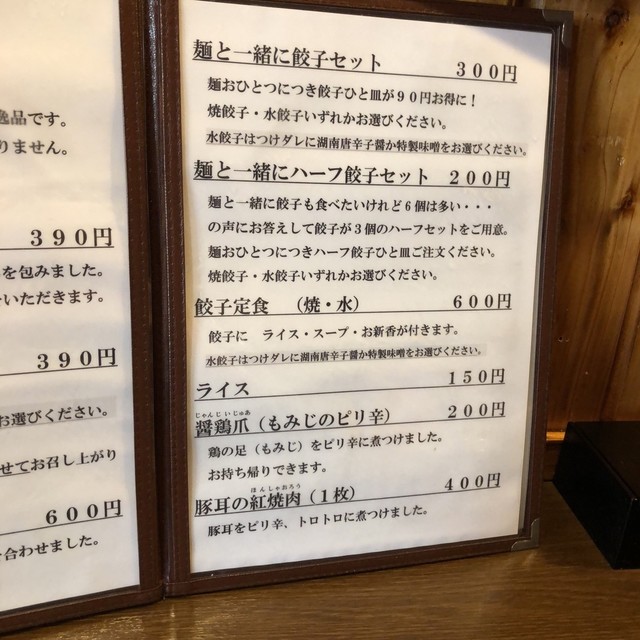 逸品です。
りません。
３９０円
を包みました。
いただきます。
３９０円
お選びください。
せてお召し上がり
６００円
合わせました。
麺と一緒に餃子セット ３００円
麺おひとつにつき餃子ひと皿が９０円お得に！
焼餃子・水餃子いずれかお選びください。
水餃子はつけダレに湖南唐辛子醤か特製味噌をお選びください。
麺と一緒にハーフ餃子セット ２００円
麺と一緒に餃子も食べたいけれど６個は多い・・・
の声にお答えして餃子が３個のハーフセットをご用意。
麺おひとつにつきハーフ餃子ひと皿ご注文ください。
焼餃子・水餃子いずれかお選びください。
餃子定食 （焼・水） ６００円
餃子に ライス・スープ・お新香が付きます。
水餃子はつけダレに湖南唐辛子醤か特製味噌をお選びください。
ライス １５０円
じゃんじいじゅあ
醤鶏爪（もみじのピリ辛） ２００円
鶏の足（もみじ）をピリ辛に煮つけました。
お持ち帰りできます。
ほんしゃおろう
豚耳の紅焼肉（１枚） ４００円
豚耳をピリ辛、トロトロに煮つけました。